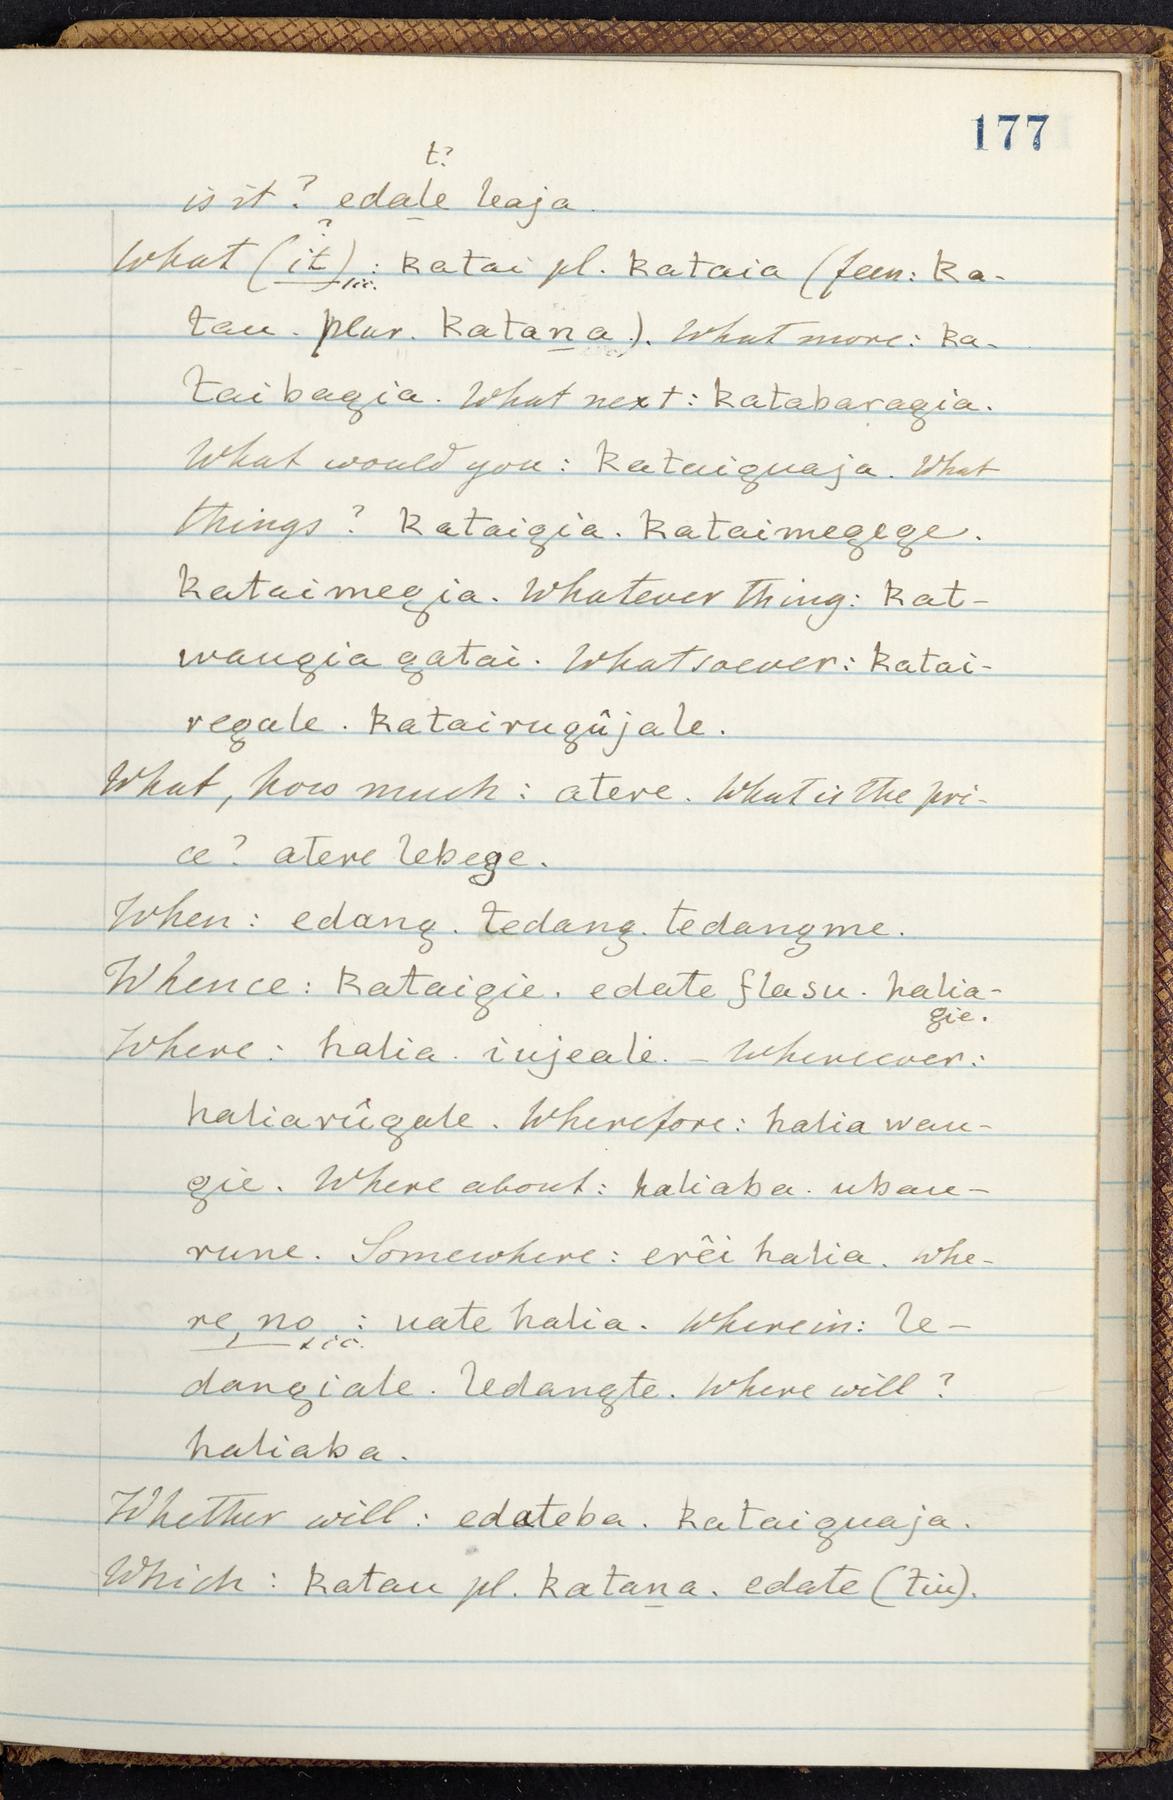 177
t?
is it? edale leaja.
?
What (it) sic: katai pl. kataia (fem: ka-
tau. plur. katana). What more: ka-
taibagia. What next: katabaragia.
What would you: kataiguaja. What
things? kataigia. kataimegege.
kataimegia. Whatever thing: kat-
waugia gatai. Whatsoever: katai-
regale. katairugûjale.
What, how much: atere. What is the pri-
ce? atere lebege.
When: edang. tedang. tedangme.
Whence: kataigie. edate flasu. halia-
gie.
Where: halia. injeale. – Whereever:
haliarûgale. Wherefore: halia wau-
gie. Where about: haliaba. ubau-
rune. Somewhere: erêi halia. whe-
re, no sic: uate halia. Wherein: le-
dangiale. ledangte. Where will?
haliaba.
Whether will: edateba. kataiguaja.
Which: katau pl. katana. edate (tiu).